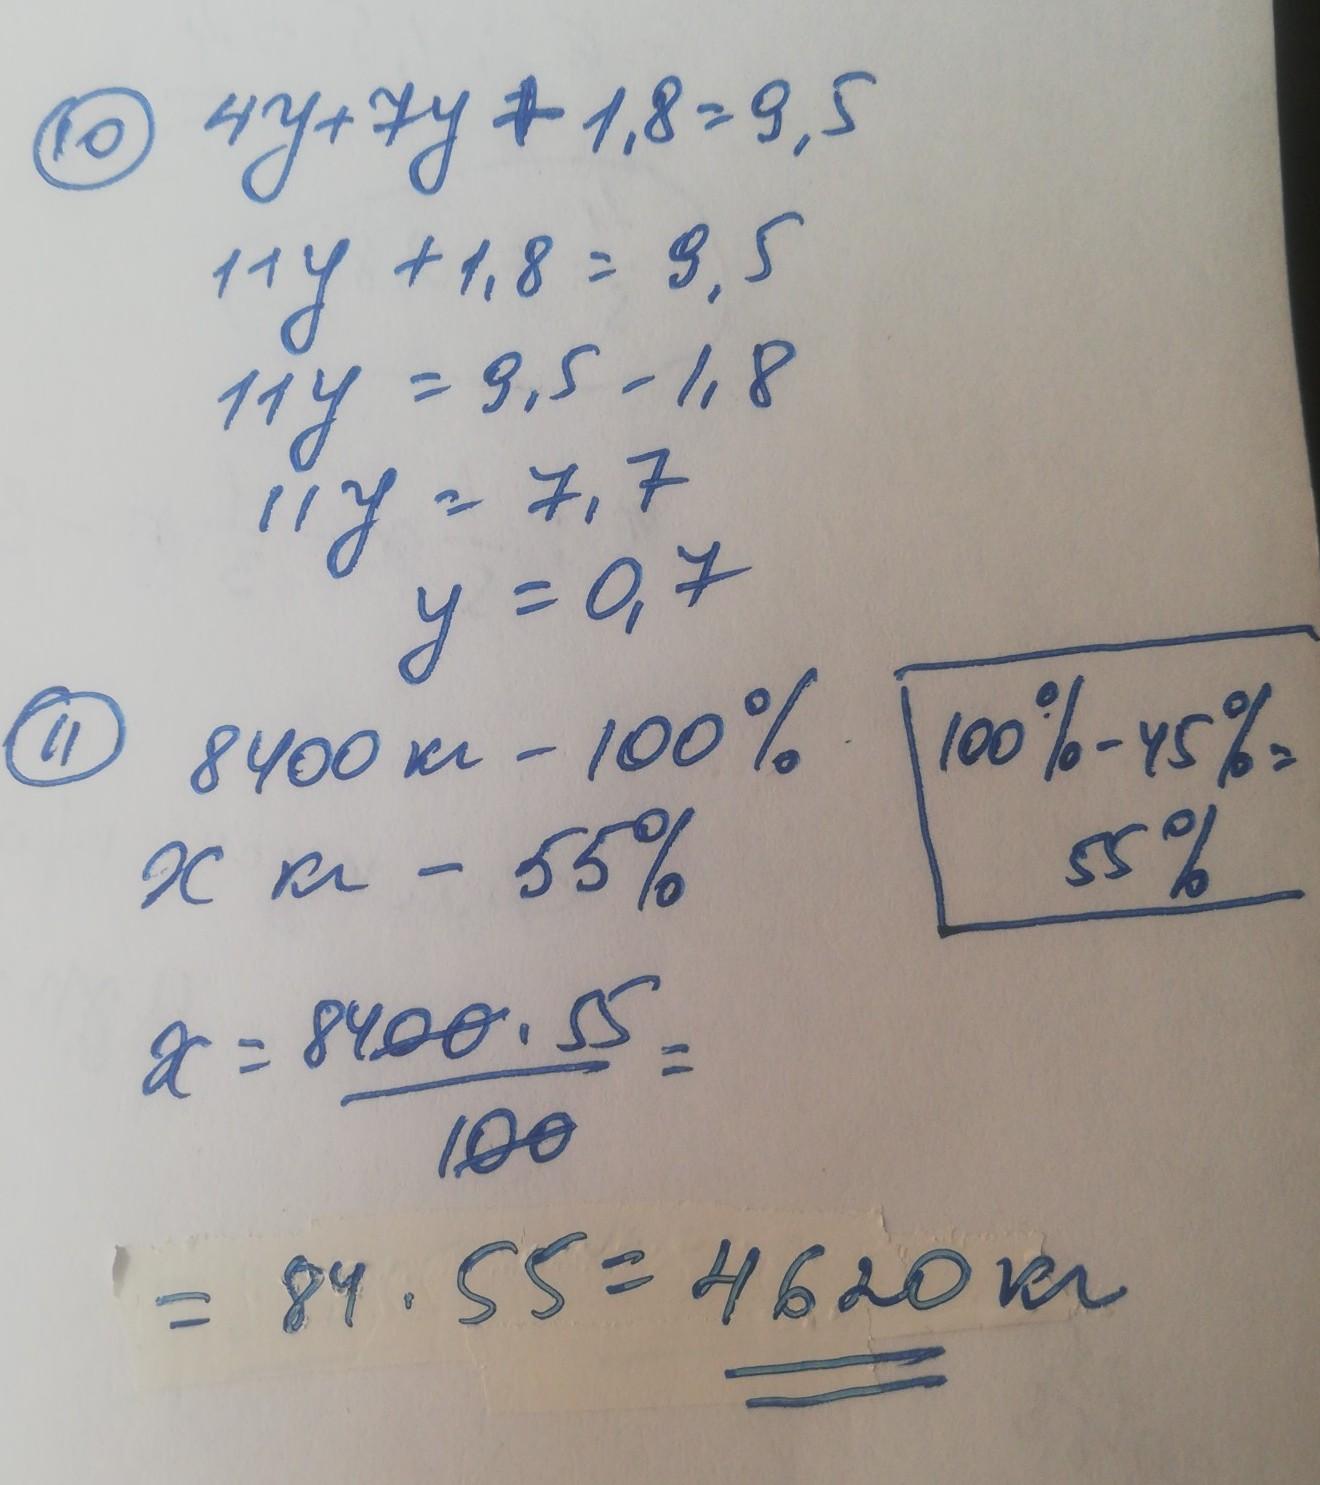 10 4y+7y+1,8=9,5
11y +1,8 = 9,5
11y = 9,5 - 1,8
11y = 7,7
y = 0,7
11 8400 кг - 100%
x кг - 55%
100% - 45% =
55%
x = 8400 · 55 / 100 =
= 84 · 55 = 4620 кг